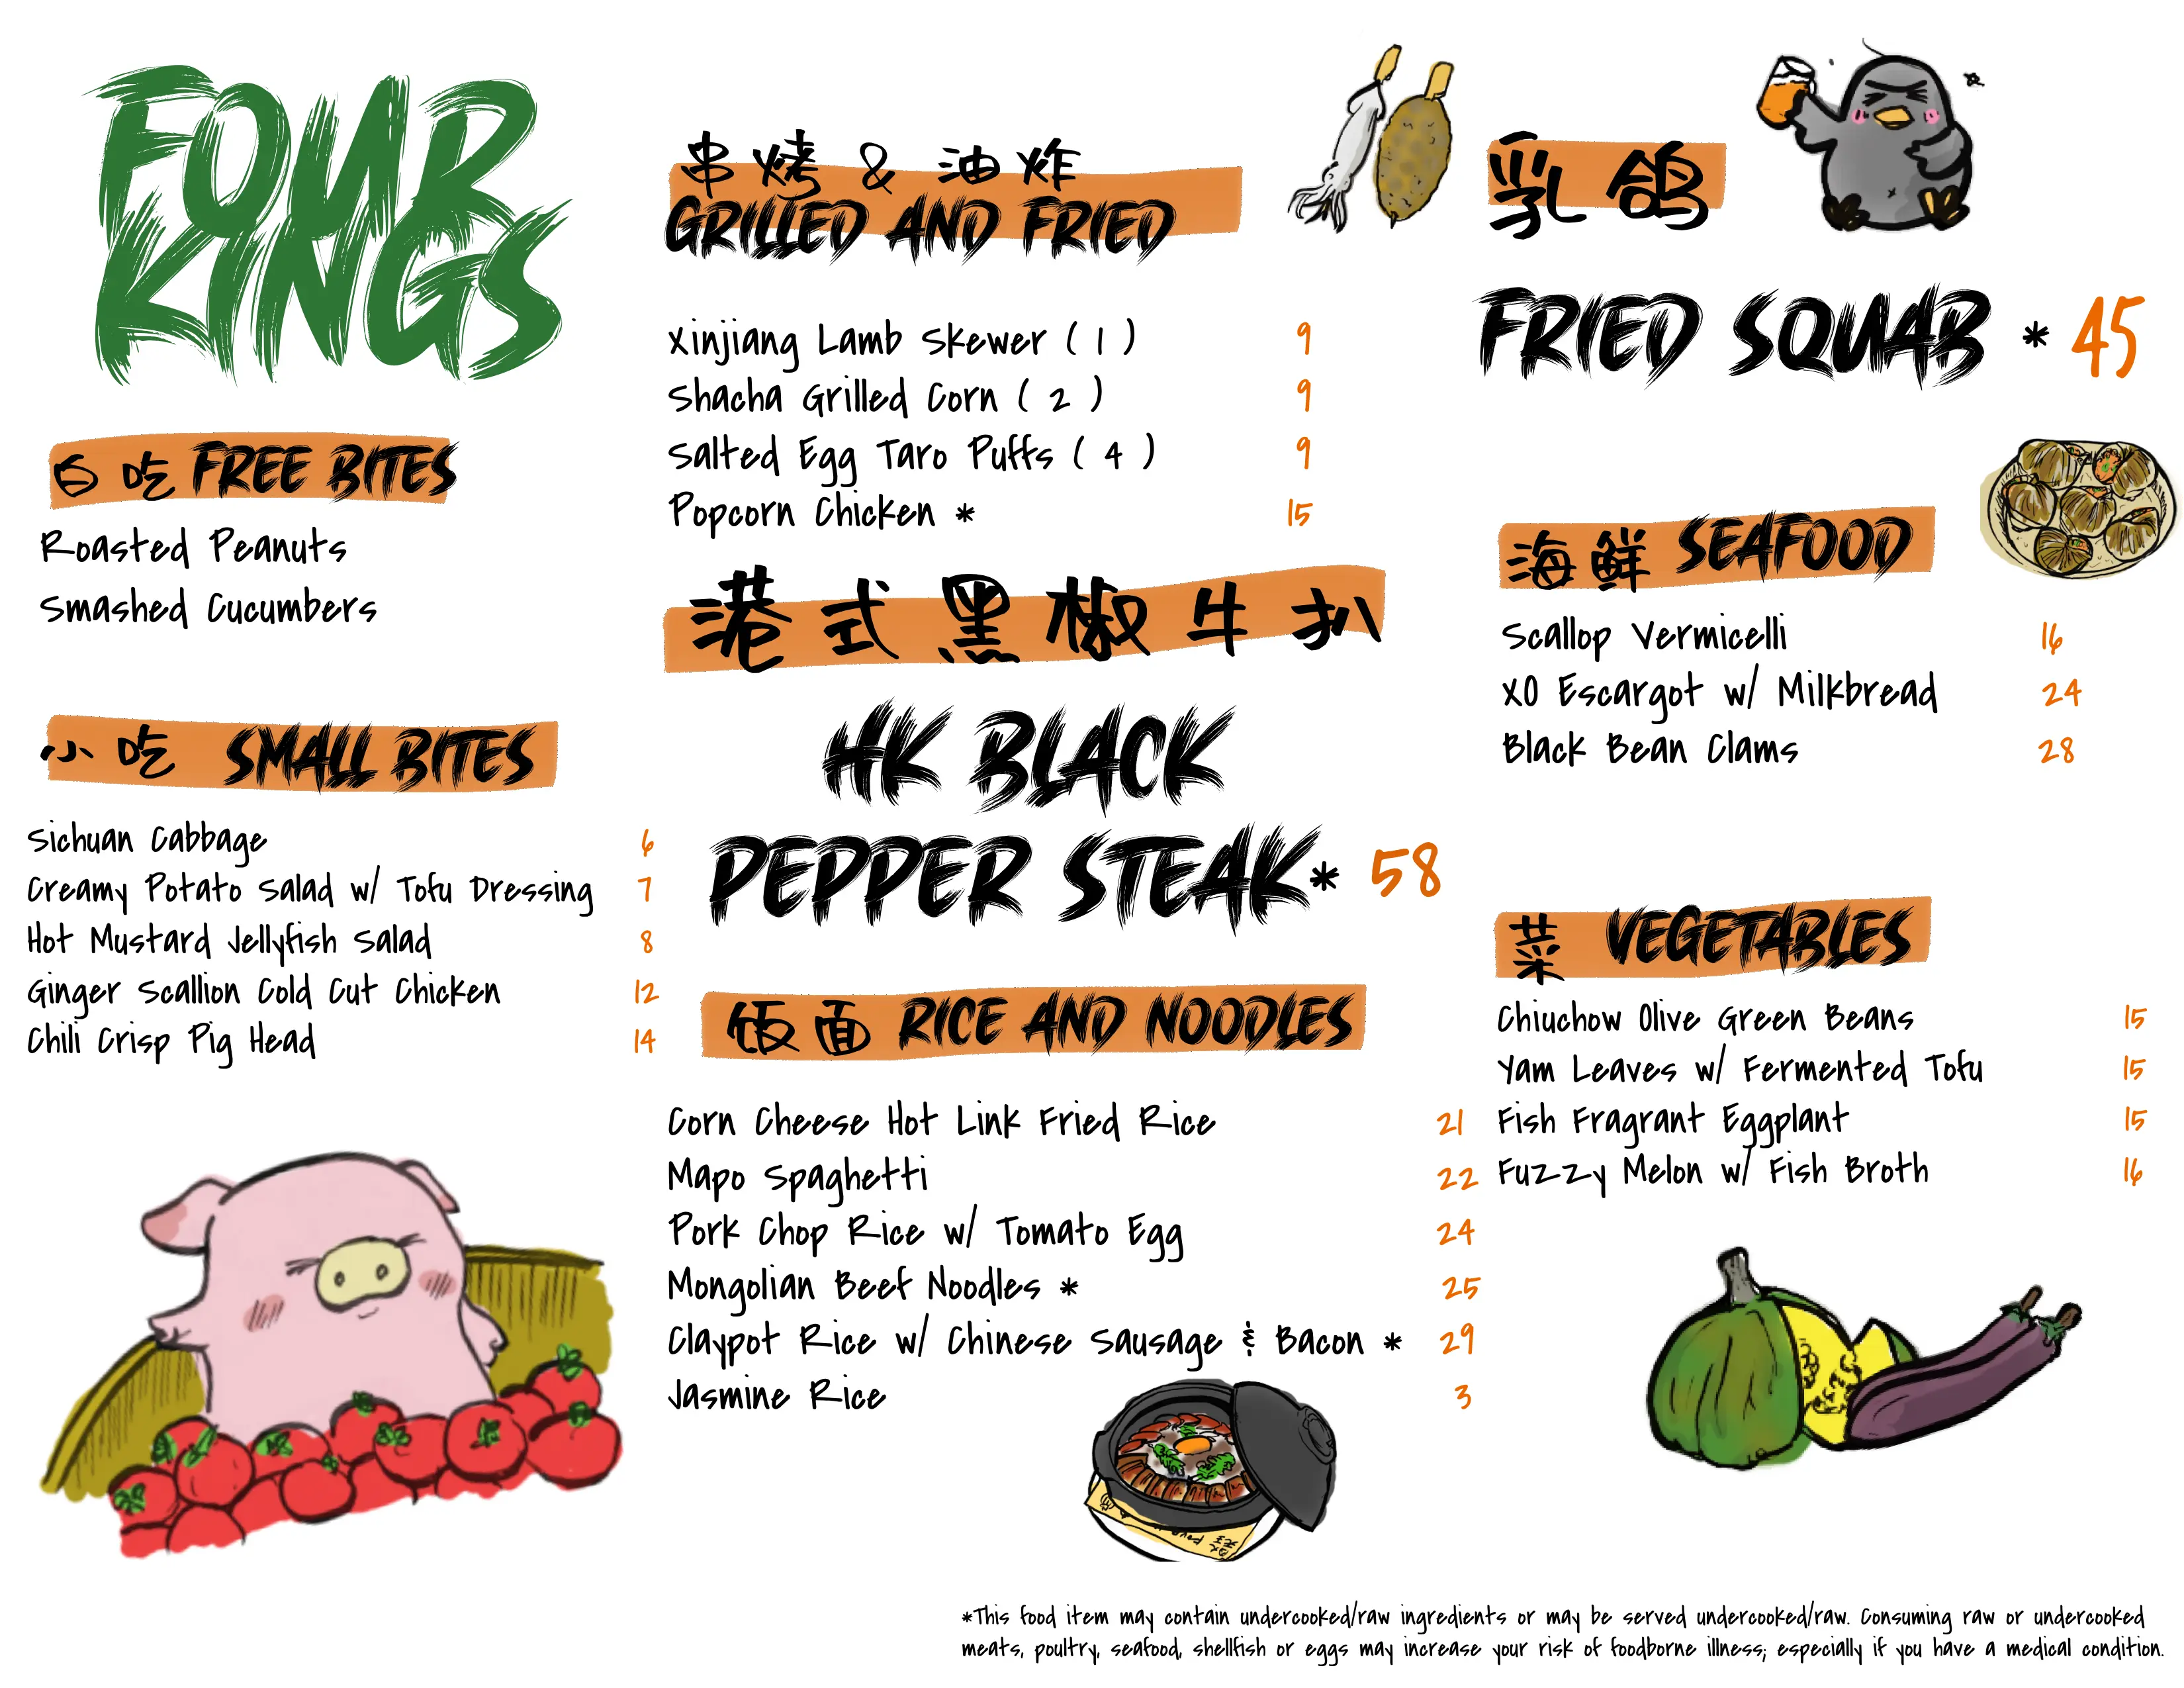 FOUR
KINGS
白吃 FREE BITES
Roasted Peanuts
Smashed Cucumbers
小吃 SMALL BITES
Sichuan Cabbage 6
Creamy Potato Salad w/ Tofu Dressing 7
Hot Mustard Jellyfish Salad 8
Ginger Scallion Cold Cut Chicken 12
Chili Crisp Pig Head 14
串烤 & 油炸
GRILLED AND FRIED
Xinjiang Lamb Skewer ( 1 ) 9
Shacha Grilled Corn ( 2 ) 9
Salted Egg Taro Puffs ( 4 ) 9
Popcorn Chicken * 15
港式黑椒牛扒
HK BLACK
PEPPER STEAK * 58
饭面 RICE AND NOODLES
Corn Cheese Hot Link Fried Rice 21
Mapo Spaghetti 22
Pork Chop Rice w/ Tomato Egg 24
Mongolian Beef Noodles * 25
Claypot Rice w/ Chinese Sausage & Bacon * 29
Jasmine Rice 3
乳鴿
FRIED SQUAB * 45
海鲜 SEAFOOD
Scallop Vermicelli 16
XO Escargot w/ Milkbread 24
Black Bean Clams 28
菜 VEGETABLES
Chiuchow Olive Green Beans 15
Yam Leaves w/ Fermented Tofu 15
Fish Fragrant Eggplant 15
Fuzzy Melon w/ Fish Broth 16
*This food item may contain undercooked/raw ingredients or may be served undercooked/raw. Consuming raw or undercooked
meats, poultry, seafood, shellfish or eggs may increase your risk of foodborne illness; especially if you have a medical condition.